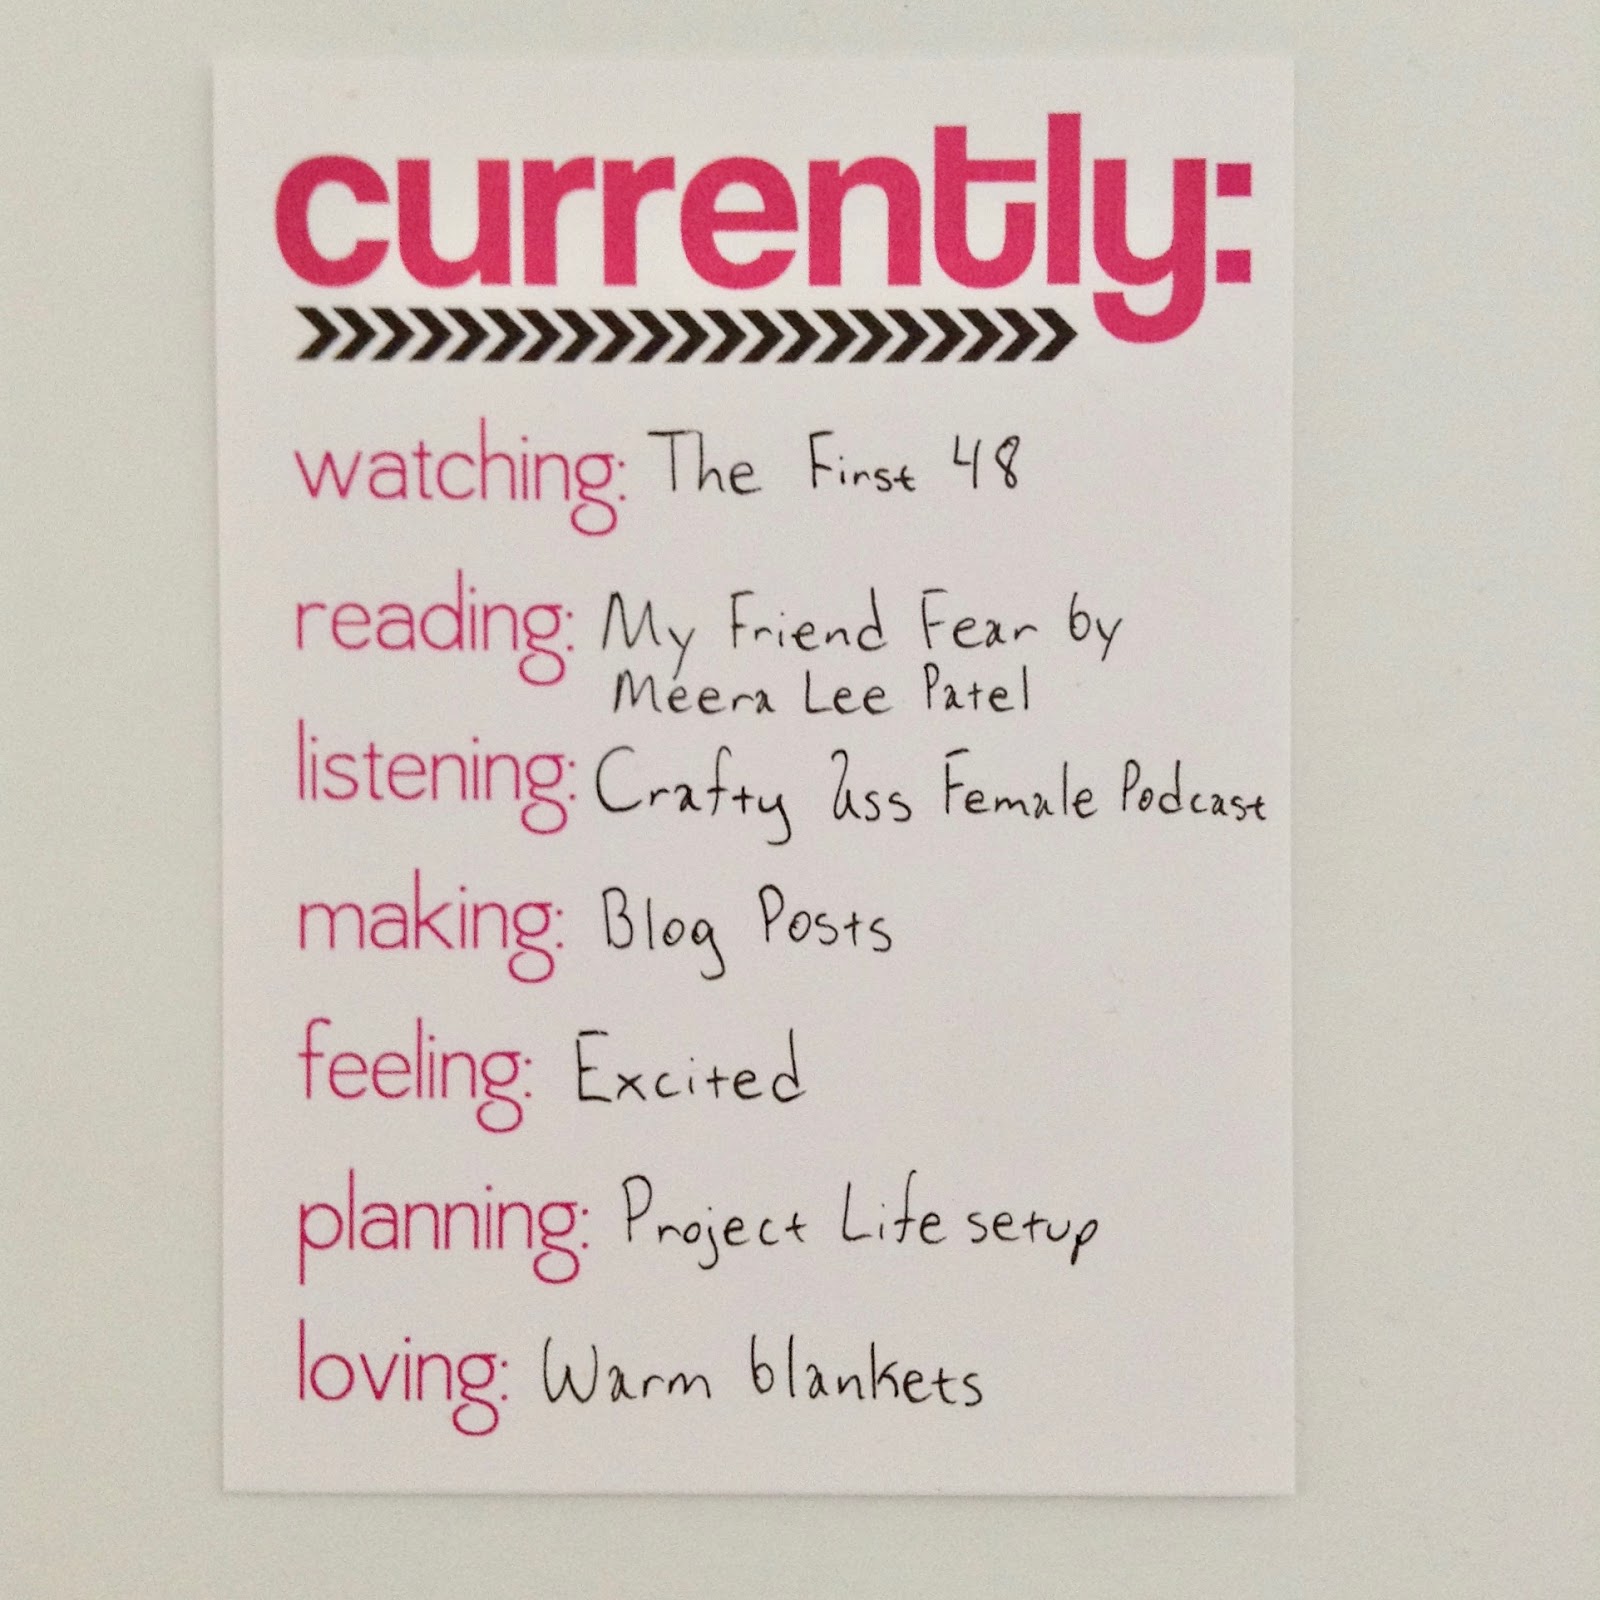 currently:
watching: The First 48
reading: My Friend Fear by
Meera Lee Patel
listening: Crafty Ass Female Podcast
making: Blog Posts
feeling: Excited
planning: Project Life setup
loving: Warm blankets